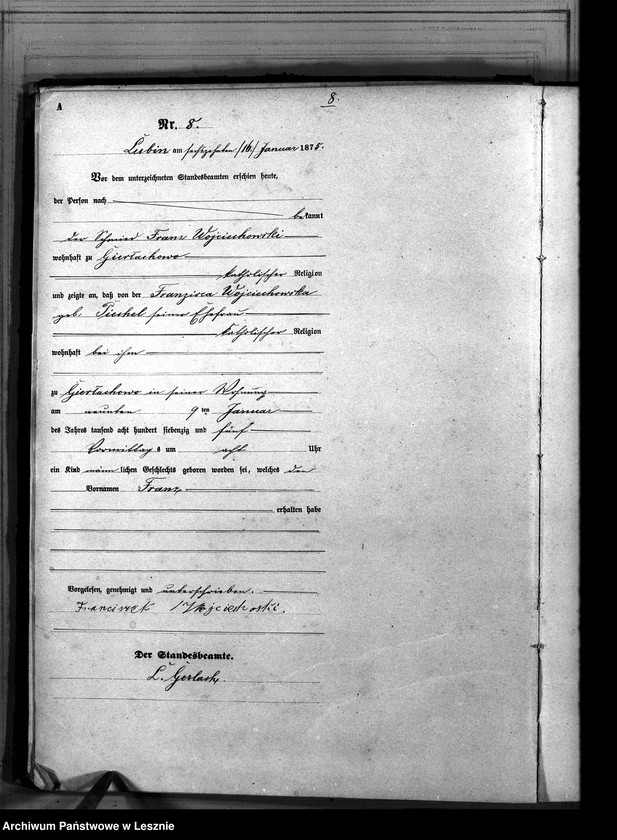 8.
A
Nr. 8.
Lubin am sechszehnten /16/ Januar 1875.
Vor dem unterzeichneten Standesbeamten erschien heute,
der Person nach
bekannt
der Schmied Franz Wojciechowski
wohnhaft zu Gierlachowo
katholischer Religion
und zeigte an, daß von der Franzisca Wojciechowska
geb. seiner Ehefrau
katholischer Religion
wohnhaft bei ihm
zu Gierlachowo in seiner Wohnung
am neunten 9ten Januar
des Jahres tausend acht hundert siebenzig und fünf
Vormittags um acht Uhr
ein Kind männlichen Geschlechts geboren worden sei, welches den
Vornamen Franz
erhalten habe
Vorgelesen, genehmigt und unterschrieben.
Franciszek Wojciechoski.
Der Standesbeamte.
L. Gerlach
Archiwum Państwowe w Lesznie